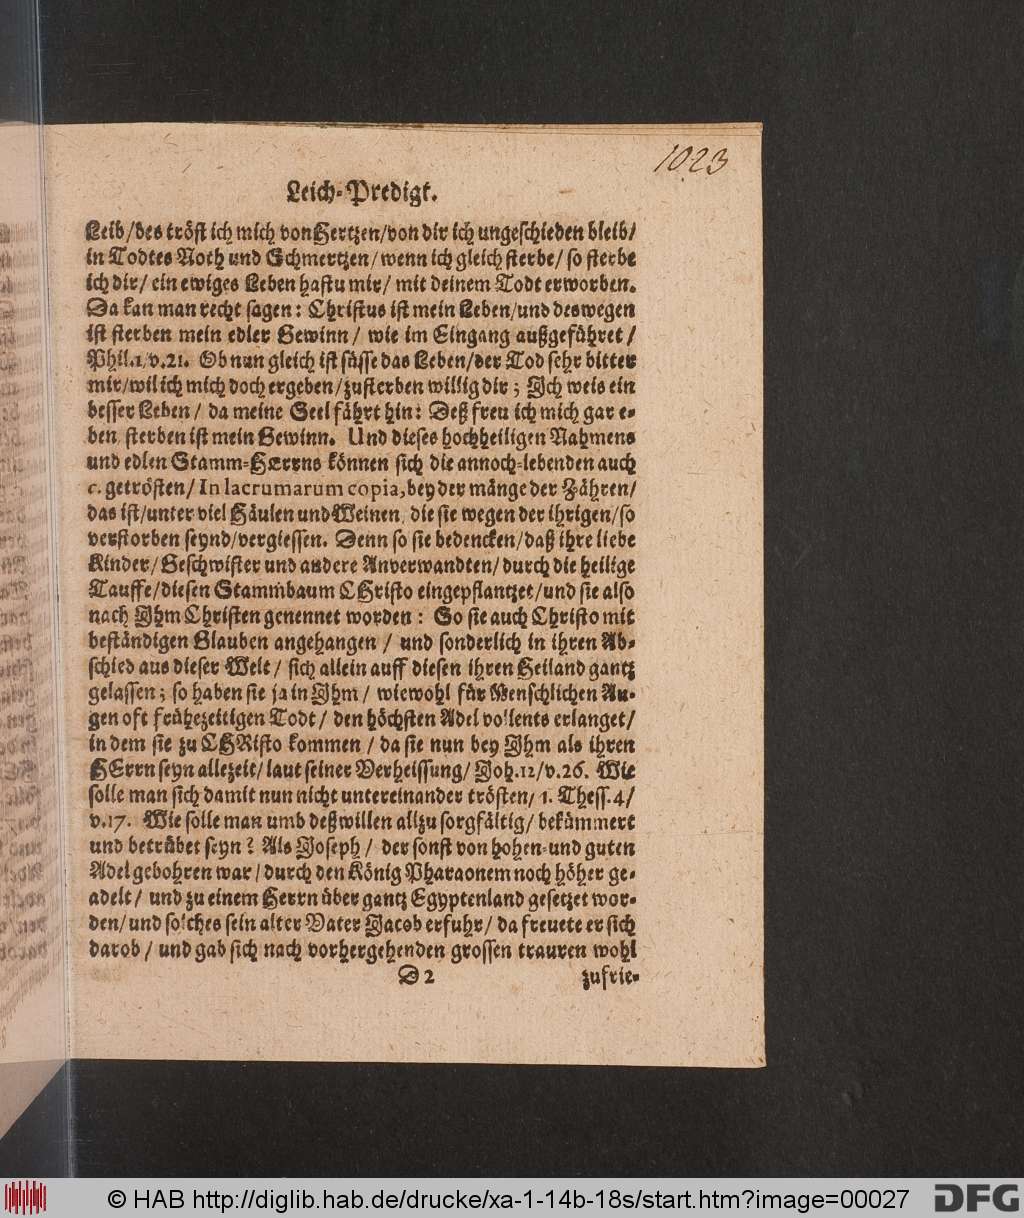 1023
Leich-Predigt.
Leib/des tröst ich mich von Hertzen/von dir ich ungeschieden bleib/
in Todtes Noth und Schmertzen/wenn ich gleich sterbe/so sterbe
ich dir/ein ewiges Leben hastu mir/mit deinem Todt erworben.
Da kan man recht sagen: Christus ist mein Leben/und deswegen
ist sterben mein edler Gewinn/wie im Eingang außgeführet/
Phil.1/v.21. Ob nun gleich ist süsse das Leben/der Tod sehr bitter
mir/wil ich mich doch ergeben/zusterben willig dir; Ich weis ein
besser Leben/da meine Seel fährt hin: Deß freu ich mich gar e-
ben sterben ist mein Gewinn. Und dieses hochheiligen Nahmens
und edlen Stamm-HErrns können sich die annoch-lebenden auch
c. getrösten/In lacrumarum copia, bey der mänge der Zähren/
das ist/unter viel Häulen und Weinen, die sie wegen der ihrigen/so
verstorben seynd/vergiessen. Denn so sie bedencken/daß ihre liebe
Kinder/Geschwister und andere Anverwandten/durch die heilige
Tauffe/diesen Stammbaum CHristo eingepflantzet/und sie also
nach Ihm Christen genennet worden: So sie auch Christo mit
beständigen Glauben angehangen/und sonderlich in ihren Ab-
schied aus dieser Welt/sich allein auff diesen ihren Heiland gantz
gelassen; so haben sie ja in Ihm/wiewohl für Menschlichen Au-
gen oft frühezeitigen Todt/den höchsten Adel vollents erlanget/
in dem sie zu CHRisto kommen/da sie nun bey Ihm als ihren
HErrn seyn allezeit/laut seiner Verheissung/Joh.12/v.26. Wie
solle man sich damit nun nicht untereinander trösten/1. Thess.4/
v.17. Wie solle man umb deßwillen allzu sorgfältig/bekümmert
und betrübet seyn? Als Joseph/der sonst von hohen-und guten
Adel gebohren war/durch den König Pharaonem noch höher ge-
adelt/und zu einem Herrn über gantz Egyptenland gesetzet wor-
den/und solches sein alter Vater Jacob erfuhr/da freuete er sich
darob/und gab sich nach vorhergehenden grossen trauren wohl
D 2 zufrie-
© HAB http://diglib.hab.de/drucke/xa-1-14b-18s/start.htm?image=00027
DFG